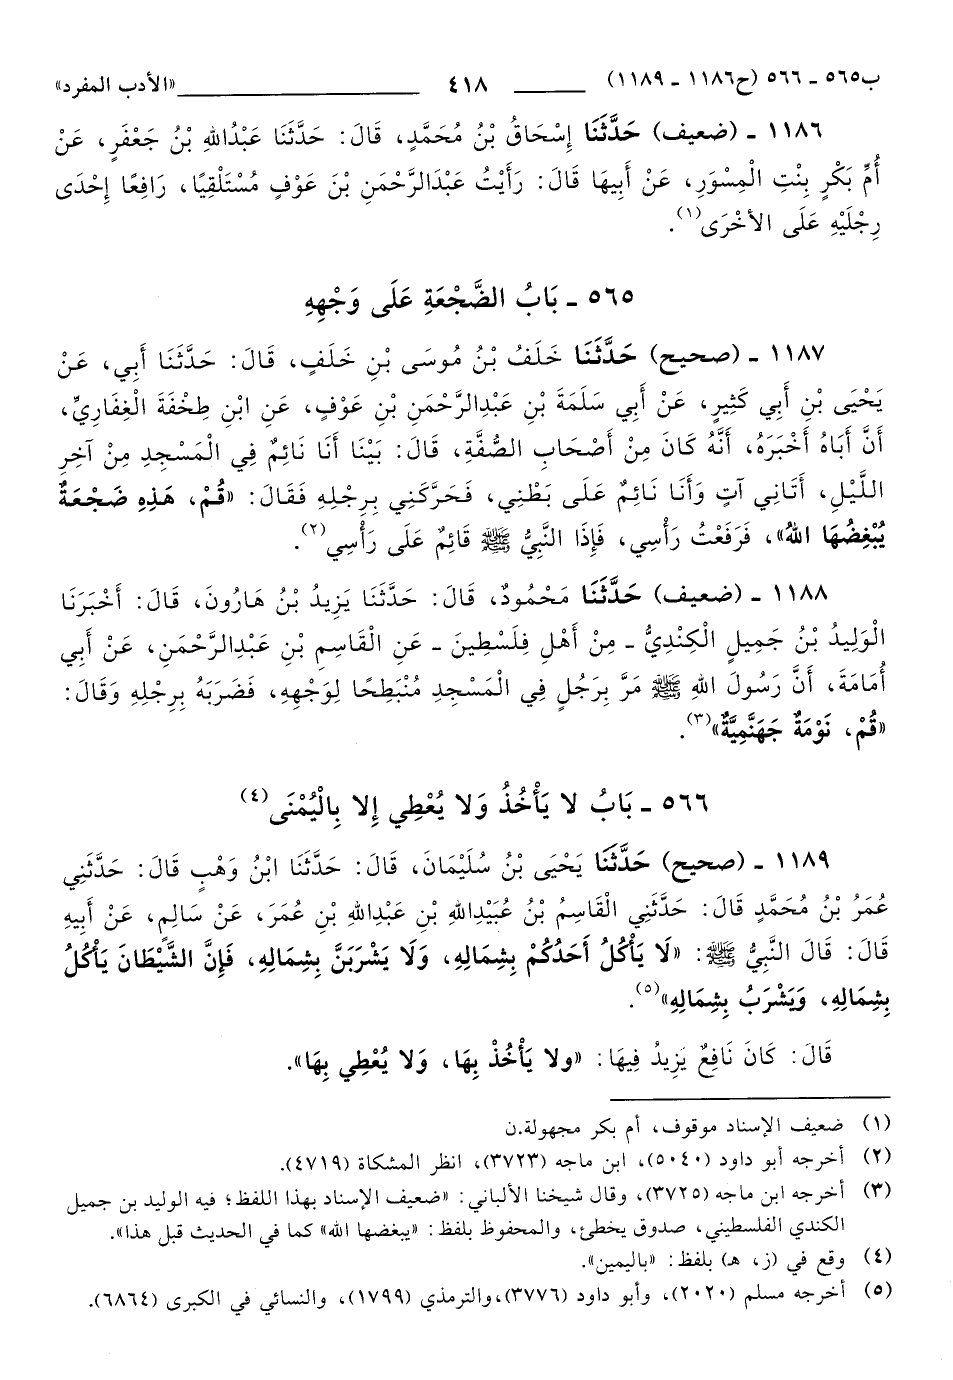 ب٥٦٥ ـ ٥٦٦ (ح١١٨٦ ـ ١١٨٩) ٤١٨ «الأدب المفرد»
١١٨٦ ـ (ضعيف) حَدَّثَنَا إِسْحَاقُ بْنُ مُحَمَّدٍ، قَالَ: حَدَّثَنَا عَبْدُاللهِ بْنُ جَعْفَرٍ، عَنْ
أُمِّ بَكْرٍ بِنْتِ الْمِسْوَرِ، عَنْ أَبِيهَا قَالَ: رَأَيْتُ عَبْدَالرَّحْمَنِ بْنَ عَوْفٍ مُسْتَلْقِيًا، رَافِعًا إِحْدَى
رِجْلَيْهِ عَلَى الأُخْرَى(١).
٥٦٥ ـ بَابُ الضَّجْعَةِ عَلَى وَجْهِهِ
١١٨٧ ـ (صحيح) حَدَّثَنَا خَلَفُ بْنُ مُوسَى بْنِ خَلَفٍ، قَالَ: حَدَّثَنَا أَبِي، عَنْ
يَحْيَى بْنِ أَبِي كَثِيرٍ، عَنْ أَبِي سَلَمَةَ بْنِ عَبْدِالرَّحْمَنِ بْنِ عَوْفٍ، عَنِ ابْنِ طِخْفَةَ الْغِفَارِيِّ،
أَنَّ أَبَاهُ أَخْبَرَهُ، أَنَّهُ كَانَ مِنْ أَصْحَابِ الصُّفَّةِ، قَالَ: بَيْنَا أَنَا نَائِمٌ فِي الْمَسْجِدِ مِنْ آخِرِ
اللَّيْلِ، أَتَانِي آتٍ وَأَنَا نَائِمٌ عَلَى بَطْنِي، فَحَرَّكَنِي بِرِجْلِهِ فَقَالَ: «قُمْ، هَذِهِ ضَجْعَةٌ
يُبْغِضُهَا اللهُ»، فَرَفَعْتُ رَأْسِي، فَإِذَا النَّبِيُّ ﷺ قَائِمٌ عَلَى رَأْسِي(٢).
١١٨٨ ـ (ضعيف) حَدَّثَنَا مَحْمُودٌ، قَالَ: حَدَّثَنَا يَزِيدُ بْنُ هَارُونَ، قَالَ: أَخْبَرَنَا
الْوَلِيدُ بْنُ جَمِيلٍ الْكِنْدِيُّ ـ مِنْ أَهْلِ فِلَسْطِينَ ـ عَنِ الْقَاسِمِ بْنِ عَبْدِالرَّحْمَنِ، عَنْ أَبِي
أُمَامَةَ، أَنَّ رَسُولَ اللهِ ﷺ مَرَّ بِرَجُلٍ فِي الْمَسْجِدِ مُنْبَطِحًا لِوَجْهِهِ، فَضَرَبَهُ بِرِجْلِهِ وَقَالَ:
«قُمْ، نَوْمَةٌ جَهَنَّمِيَّةٌ»(٣).
٥٦٦ ـ بَابُ لا يَأْخُذُ وَلا يُعْطِي إِلا بِالْيُمْنَى(٤)
١١٨٩ ـ (صحيح) حَدَّثَنَا يَحْيَى بْنُ سُلَيْمَانَ، قَالَ: حَدَّثَنَا ابْنُ وَهْبٍ قَالَ: حَدَّثَنِي
عُمَرُ بْنُ مُحَمَّدٍ قَالَ: حَدَّثَنِي الْقَاسِمُ بْنُ عُبَيْدِاللهِ بْنِ عَبْدِاللهِ بْنِ عُمَرَ، عَنْ سَالِمٍ، عَنْ أَبِيهِ
قَالَ: قَالَ النَّبِيُّ ﷺ: «لَا يَأْكُلُ أَحَدُكُمْ بِشِمَالِهِ، وَلَا يَشْرَبَنَّ بِشِمَالِهِ، فَإِنَّ الشَّيْطَانَ يَأْكُلُ
بِشِمَالِهِ، وَيَشْرَبُ بِشِمَالِهِ»(٥).
قَالَ: كَانَ نَافِعٌ يَزِيدُ فِيهَا: «ولا يَأْخُذْ بِهَا، وَلا يُعْطِي بِهَا».
(١) ضعيف الإسناد موقوف، أم بكر مجهولة.ن
(٢) أخرجه أبو داود (٥٠٤٠)، ابن ماجه (٣٧٢٣)، انظر المشكاة (٤٧١٩).
(٣) أخرجه ابن ماجه (٣٧٢٥)، وقال شيخنا الألباني: «ضعيف الإسناد بهذا اللفظ؛ فيه الوليد بن جميل
الكندي الفلسطيني، صدوق يخطئ، والمحفوظ بلفظ: «يبغضها الله» كما في الحديث قبل هذا».
(٤) وقع في (ز، هـ) بلفظ: «باليمين».
(٥) أخرجه مسلم (٢٠٢٠)، وأبو داود (٣٧٧٦)،والترمذي (١٧٩٩)، والنسائي في الكبرى (٦٨٦٤).